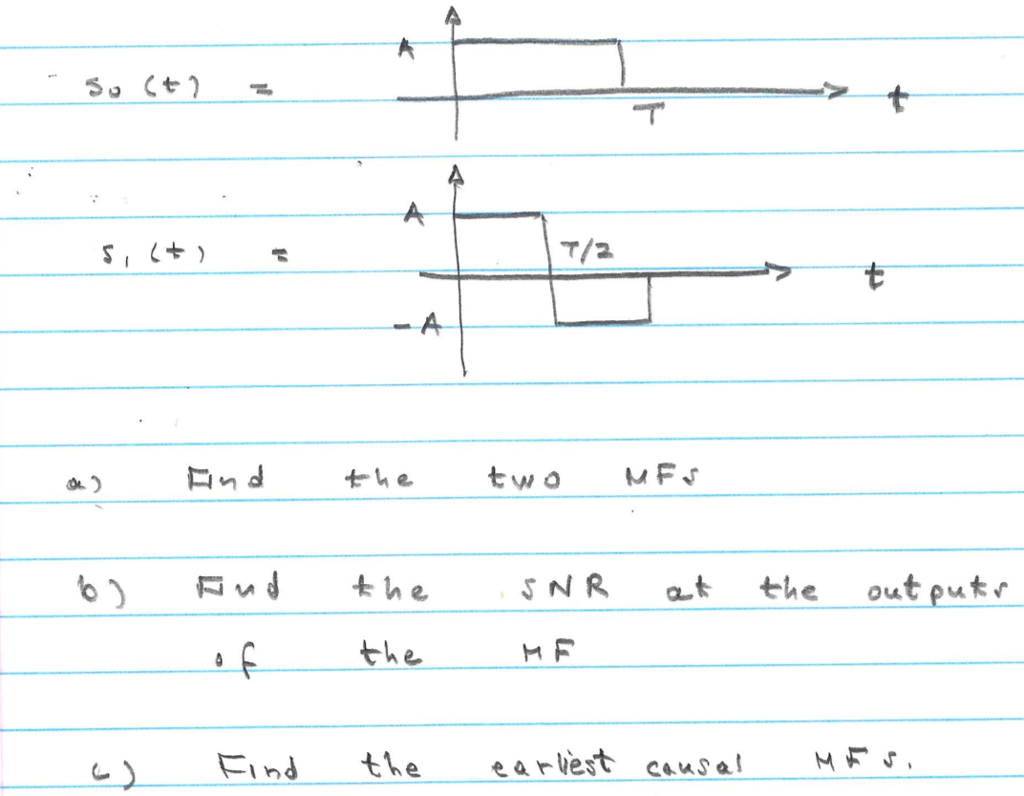 A
s₀ (t) =
T
t
A
s₁ (t) =
T/2
t
-A
a) Find the two MFs
b) Find the SNR at the outputs
of the MF
c) Find the earliest causal MFs.